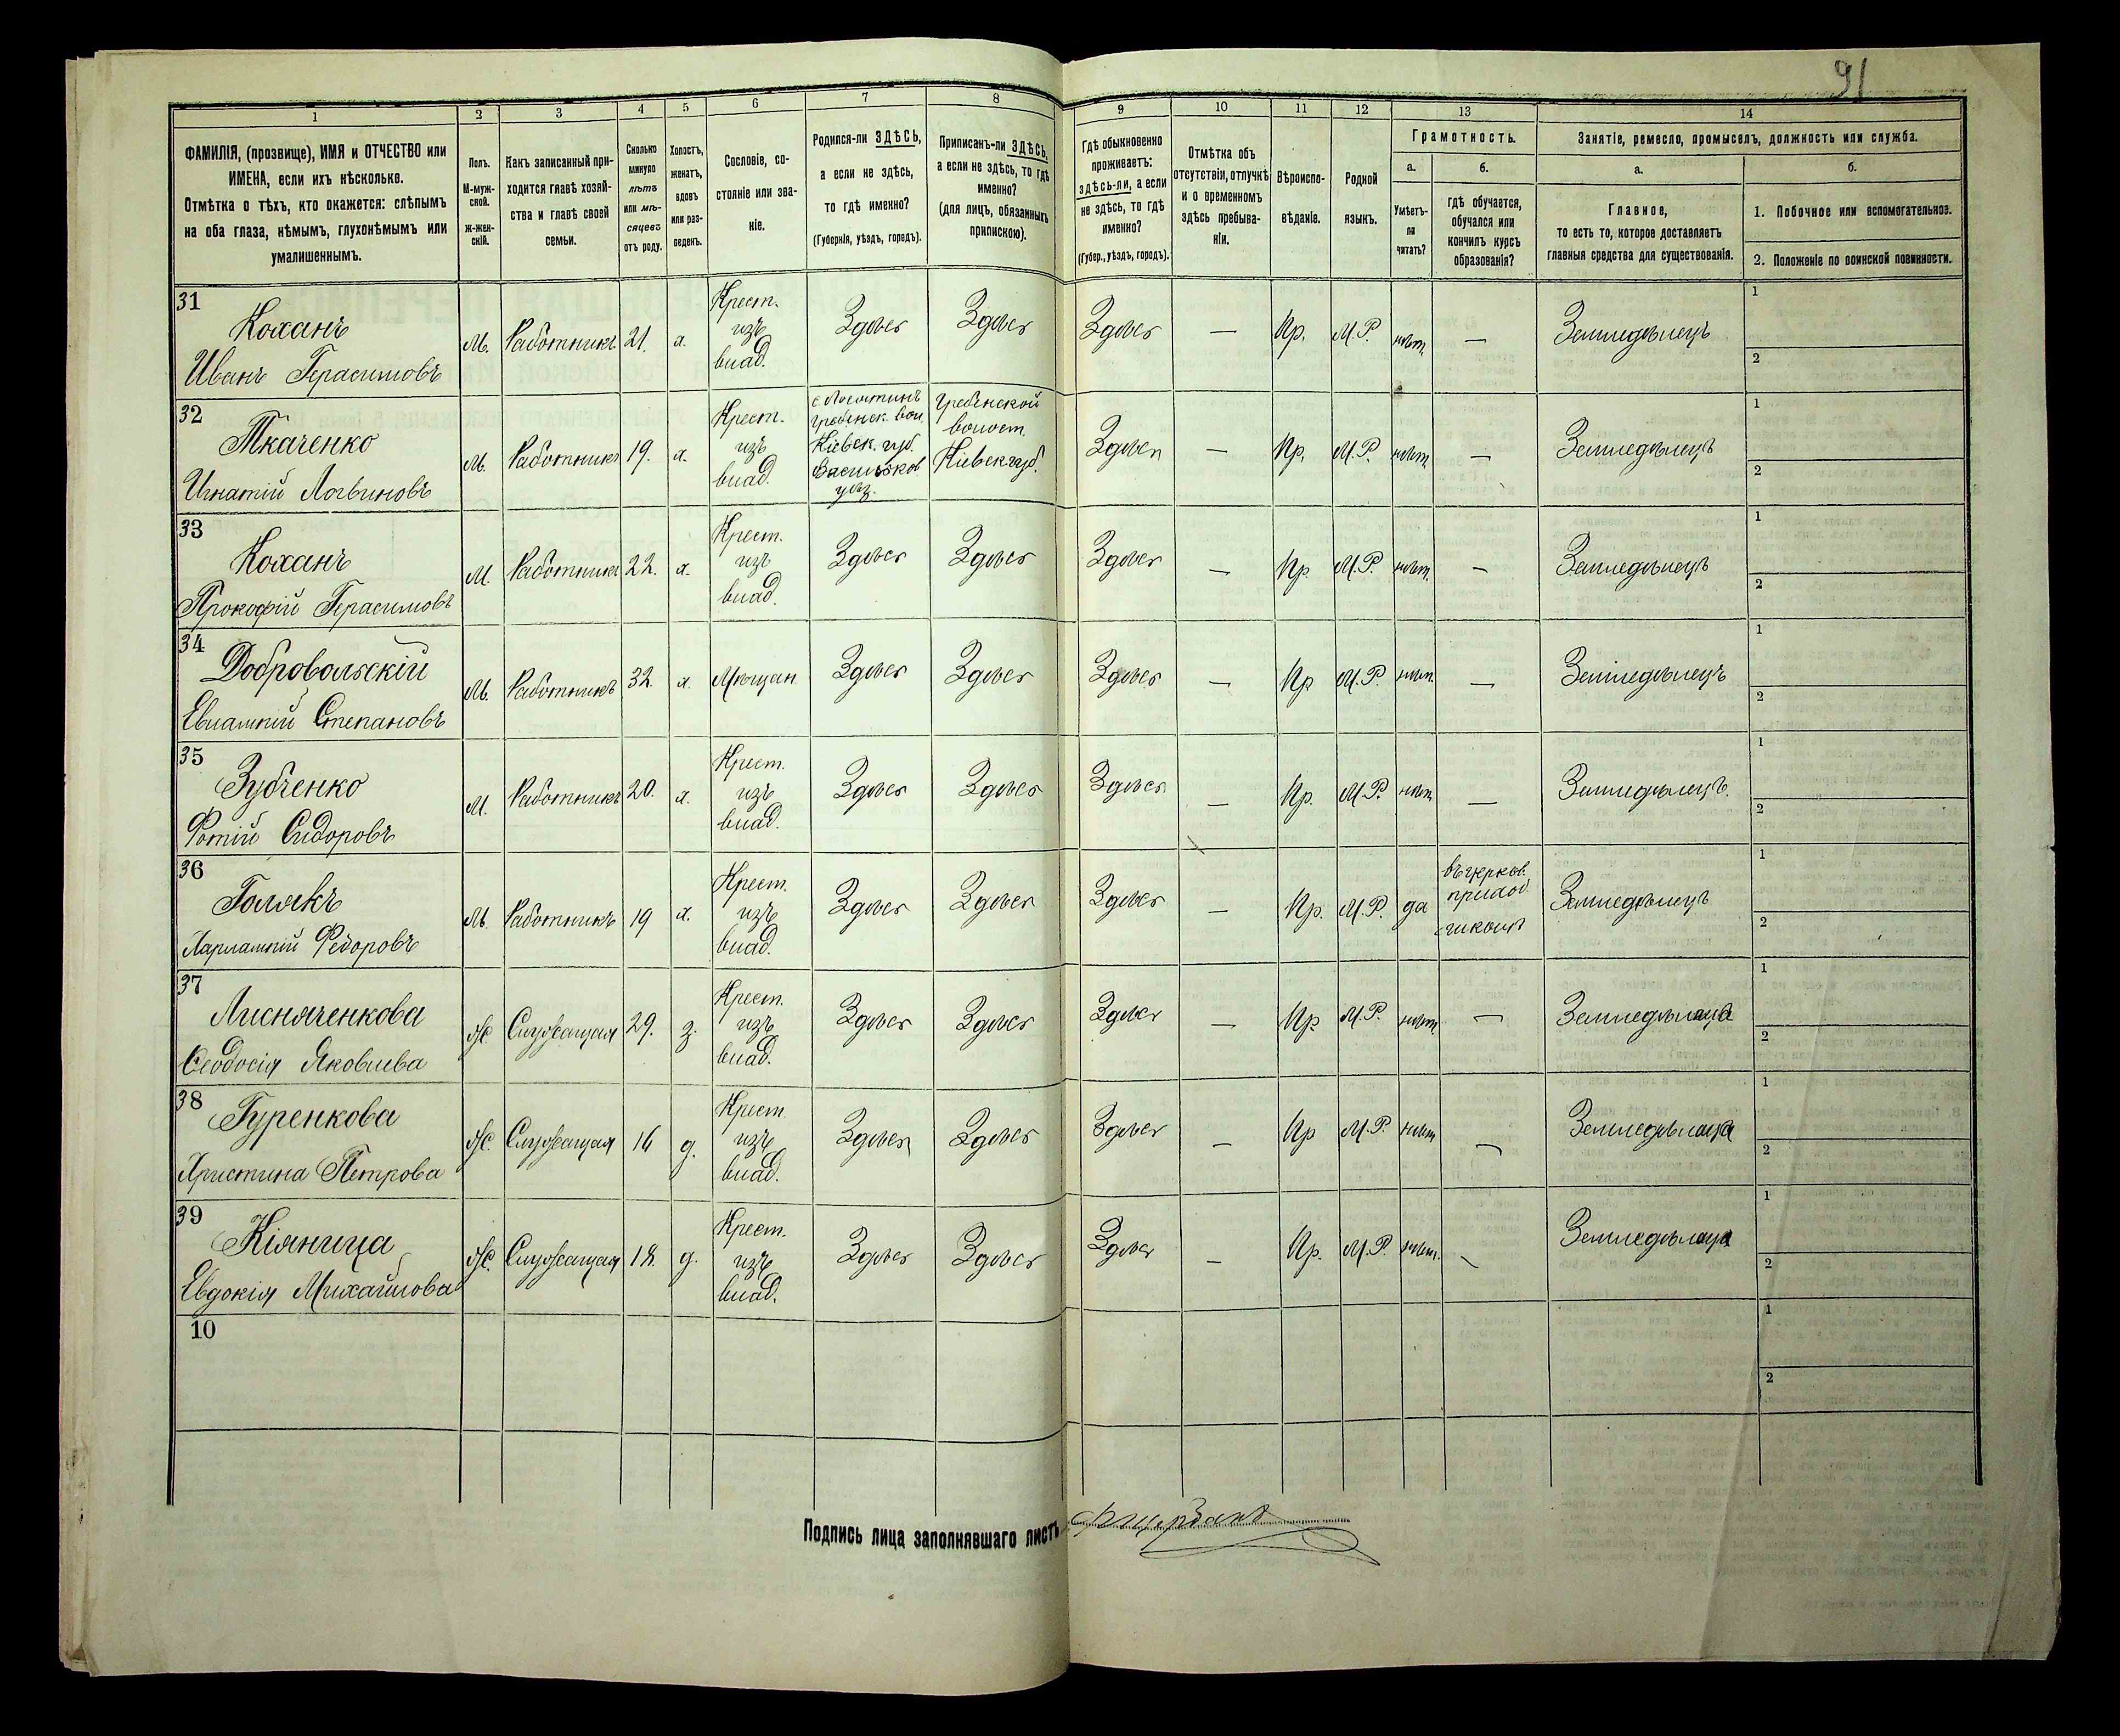 91
1 2 3 4 5 6 7 8 9 10 11 12 13 14
ФАМИЛІЯ, (прозвище), ИМЯ и ОТЧЕСТВО или
ИМЕНА, если ихъ нѣсколько.
Отмѣтка о тѣхъ, кто окажется: слѣпымъ
на оба глаза, нѣмымъ, глухонѣмымъ или
умалишеннымъ.
Полъ.
М-муж-
ской.
Ж-жен-
скій.
Какъ записанный при-
ходится главѣ хозяй-
ства и главѣ своей
семьи.
Сколько
минуло
лѣтъ
или мѣ-
сяцевъ
отъ роду.
Холостъ,
женатъ,
вдовъ
или раз-
веденъ.
Сословіе, со-
стояніе или зва-
ніе.
Родился-ли ЗДѢСЬ,
а если не здѣсь,
то гдѣ именно?
(Губернія, уѣздъ, городъ).
Приписанъ-ли ЗДѢСЬ,
а если не здѣсь, то гдѣ
именно?
(для лицъ, обязанныхъ
припискою).
Гдѣ обыкновенно
проживаетъ:
здѣсь-ли, а если
не здѣсь, то гдѣ
именно?
(Губер., уѣздъ, городъ).
Отмѣтка объ
отсутствіи, отлучкѣ
и о временномъ
здѣсь пребыва-
ніи.
Вѣроиспо-
вѣданіе.
Родной
языкъ.
Грамотность.
а.
Умѣетъ-
ли
читать?
б.
гдѣ обучается,
обучался или
кончилъ курсъ
образованія?
Занятіе, ремесло, промыселъ, должность или служба.
а.
Главное,
то есть то, которое доставляетъ
главныя средства для существованія.
б.
1. Побочное или вспомогательное.
2. Положеніе по воинской повинности.
31
Коханъ
Иванъ Герасимовъ
М. Работникъ 21. х.
Крест.
изъ
влад.
Здѣсь Здѣсь Здѣсь — Пр. М.Р. нѣт. — Земледѣлецъ
1
2
32
Ткаченко
Игнатій Логвиновъ
М. Работникъ 19. х.
Крест.
изъ
влад.
Гребенск. вол.
Кіевск. губ.
Васильков.
уѣз.
Гребенской
волост.
Кіевск. губ.
Здѣсь — Пр. М.Р. нѣт. — Земледѣлецъ
1
2
33
Коханъ
Прокофій Герасимовъ
М. Работникъ 22. х.
Крест.
изъ
влад.
Здѣсь Здѣсь Здѣсь — Пр. М.Р. нѣт. — Земледѣлецъ
1
2
34
Добровольскій
Евлампій Степановъ
М. Работникъ 32. х. Мѣщан. Здѣсь Здѣсь Здѣсь — Пр М.Р. нѣт. — Земледѣлецъ
1
2
35
Зубченко
Фотій Сидоровъ
М. Работникъ 20. х.
Крест.
изъ
влад.
Здѣсь Здѣсь Здѣсь — Пр. М.Р. нѣт. — Земледѣлецъ.
1
2
36
Голякъ
Харлампій Федоровъ
М. Работникъ 19 х.
Крест.
изъ
влад.
Здѣсь Здѣсь Здѣсь — Пр. М.Р. да
въ церков.
приход.
школѣ
Земледѣлецъ
1
2
37
Лисняченкова
Ѳеодосія Яковлева
Ж. Служащая 29. з.
Крест.
изъ
влад.
Здѣсь Здѣсь Здѣсь — Пр М.Р. нѣт — Земледѣлица
1
2
38
Гуренкова
Христина Петрова
Ж. Служащая 16 д.
Крест.
изъ
влад.
Здѣсь Здѣсь Здѣсь — Пр М.Р. нѣт — Земледѣлица
1
2
39
Кіяница
Евдокія Михайлова
Ж. Служащая 18. д.
Крест.
изъ
влад.
Здѣсь Здѣсь Здѣсь — Пр. М.Р. нѣт. — Земледѣлица
1
2
10
1
2
Подпись лица заполнявшаго листъ